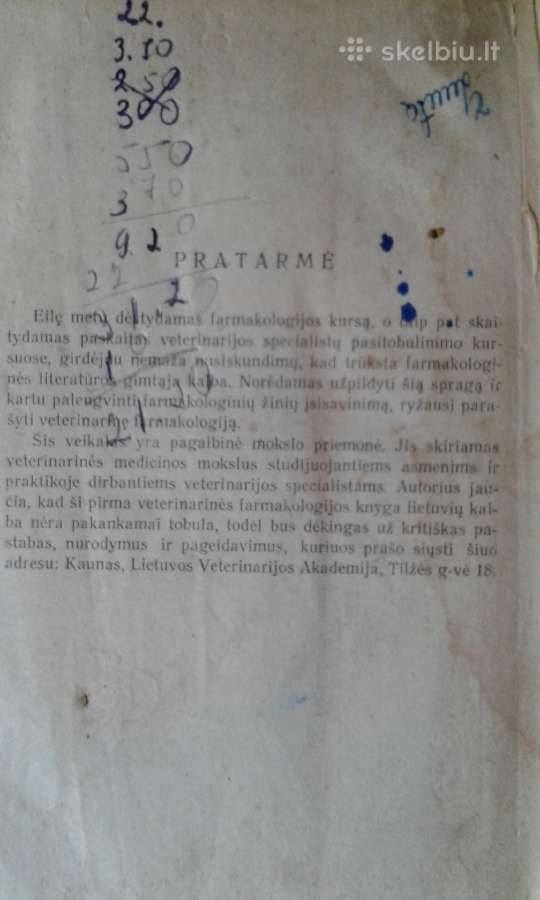 22.
3.10
skelbiu.lt
250
300
550
370
9.20
PRATARMĖ
22
Eilę metų dėstydamas farmakologijos kursą, o taip pat skai-
tydamas paskaitas veterinarijos specialistų pasitobulinimo kur-
suose, girdėjau nemaža nusiskundimų, kad trūksta farmakologi-
nės literatūros gimtąja kalba. Norėdamas užpildyti šią spragą ir
kartu palengvinti farmakologinių žinių įsisavinimą, ryžausi para-
šyti veterinarinę farmakologiją.
Šis veikalas yra pagalbinė mokslo priemonė. Jis skiriamas
veterinarinės medicinos mokslus studijuojantiems asmenims ir
praktikoje dirbantiems veterinarijos specialistams. Autorius jau-
čia, kad ši pirma veterinarinės farmakologijos knyga lietuvių kal-
ba nėra pakankamai tobula, todėl bus dėkingas už kritiškas pa-
stabas, nurodymus ir pageidavimus, kuriuos prašo siųsti šiuo
adresu: Kaunas, Lietuvos Veterinarijos Akademija, Tilžės g-vė 18.